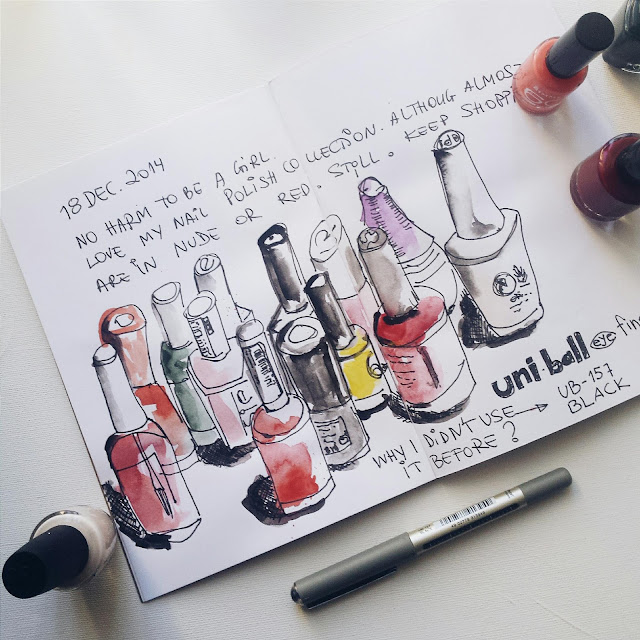 18 DEC. 2014
NO HARM TO BE A GIRL.
LOVE MY NAIL POLISH COLLECTION. ALTHOUG ALMOST
ARE IN NUDE OR RED. STILL. KEEP SHOPPI
uni-ball eye fine
UB-157
BLACK
WHY I DIDN'T USE
IT BEFORE?